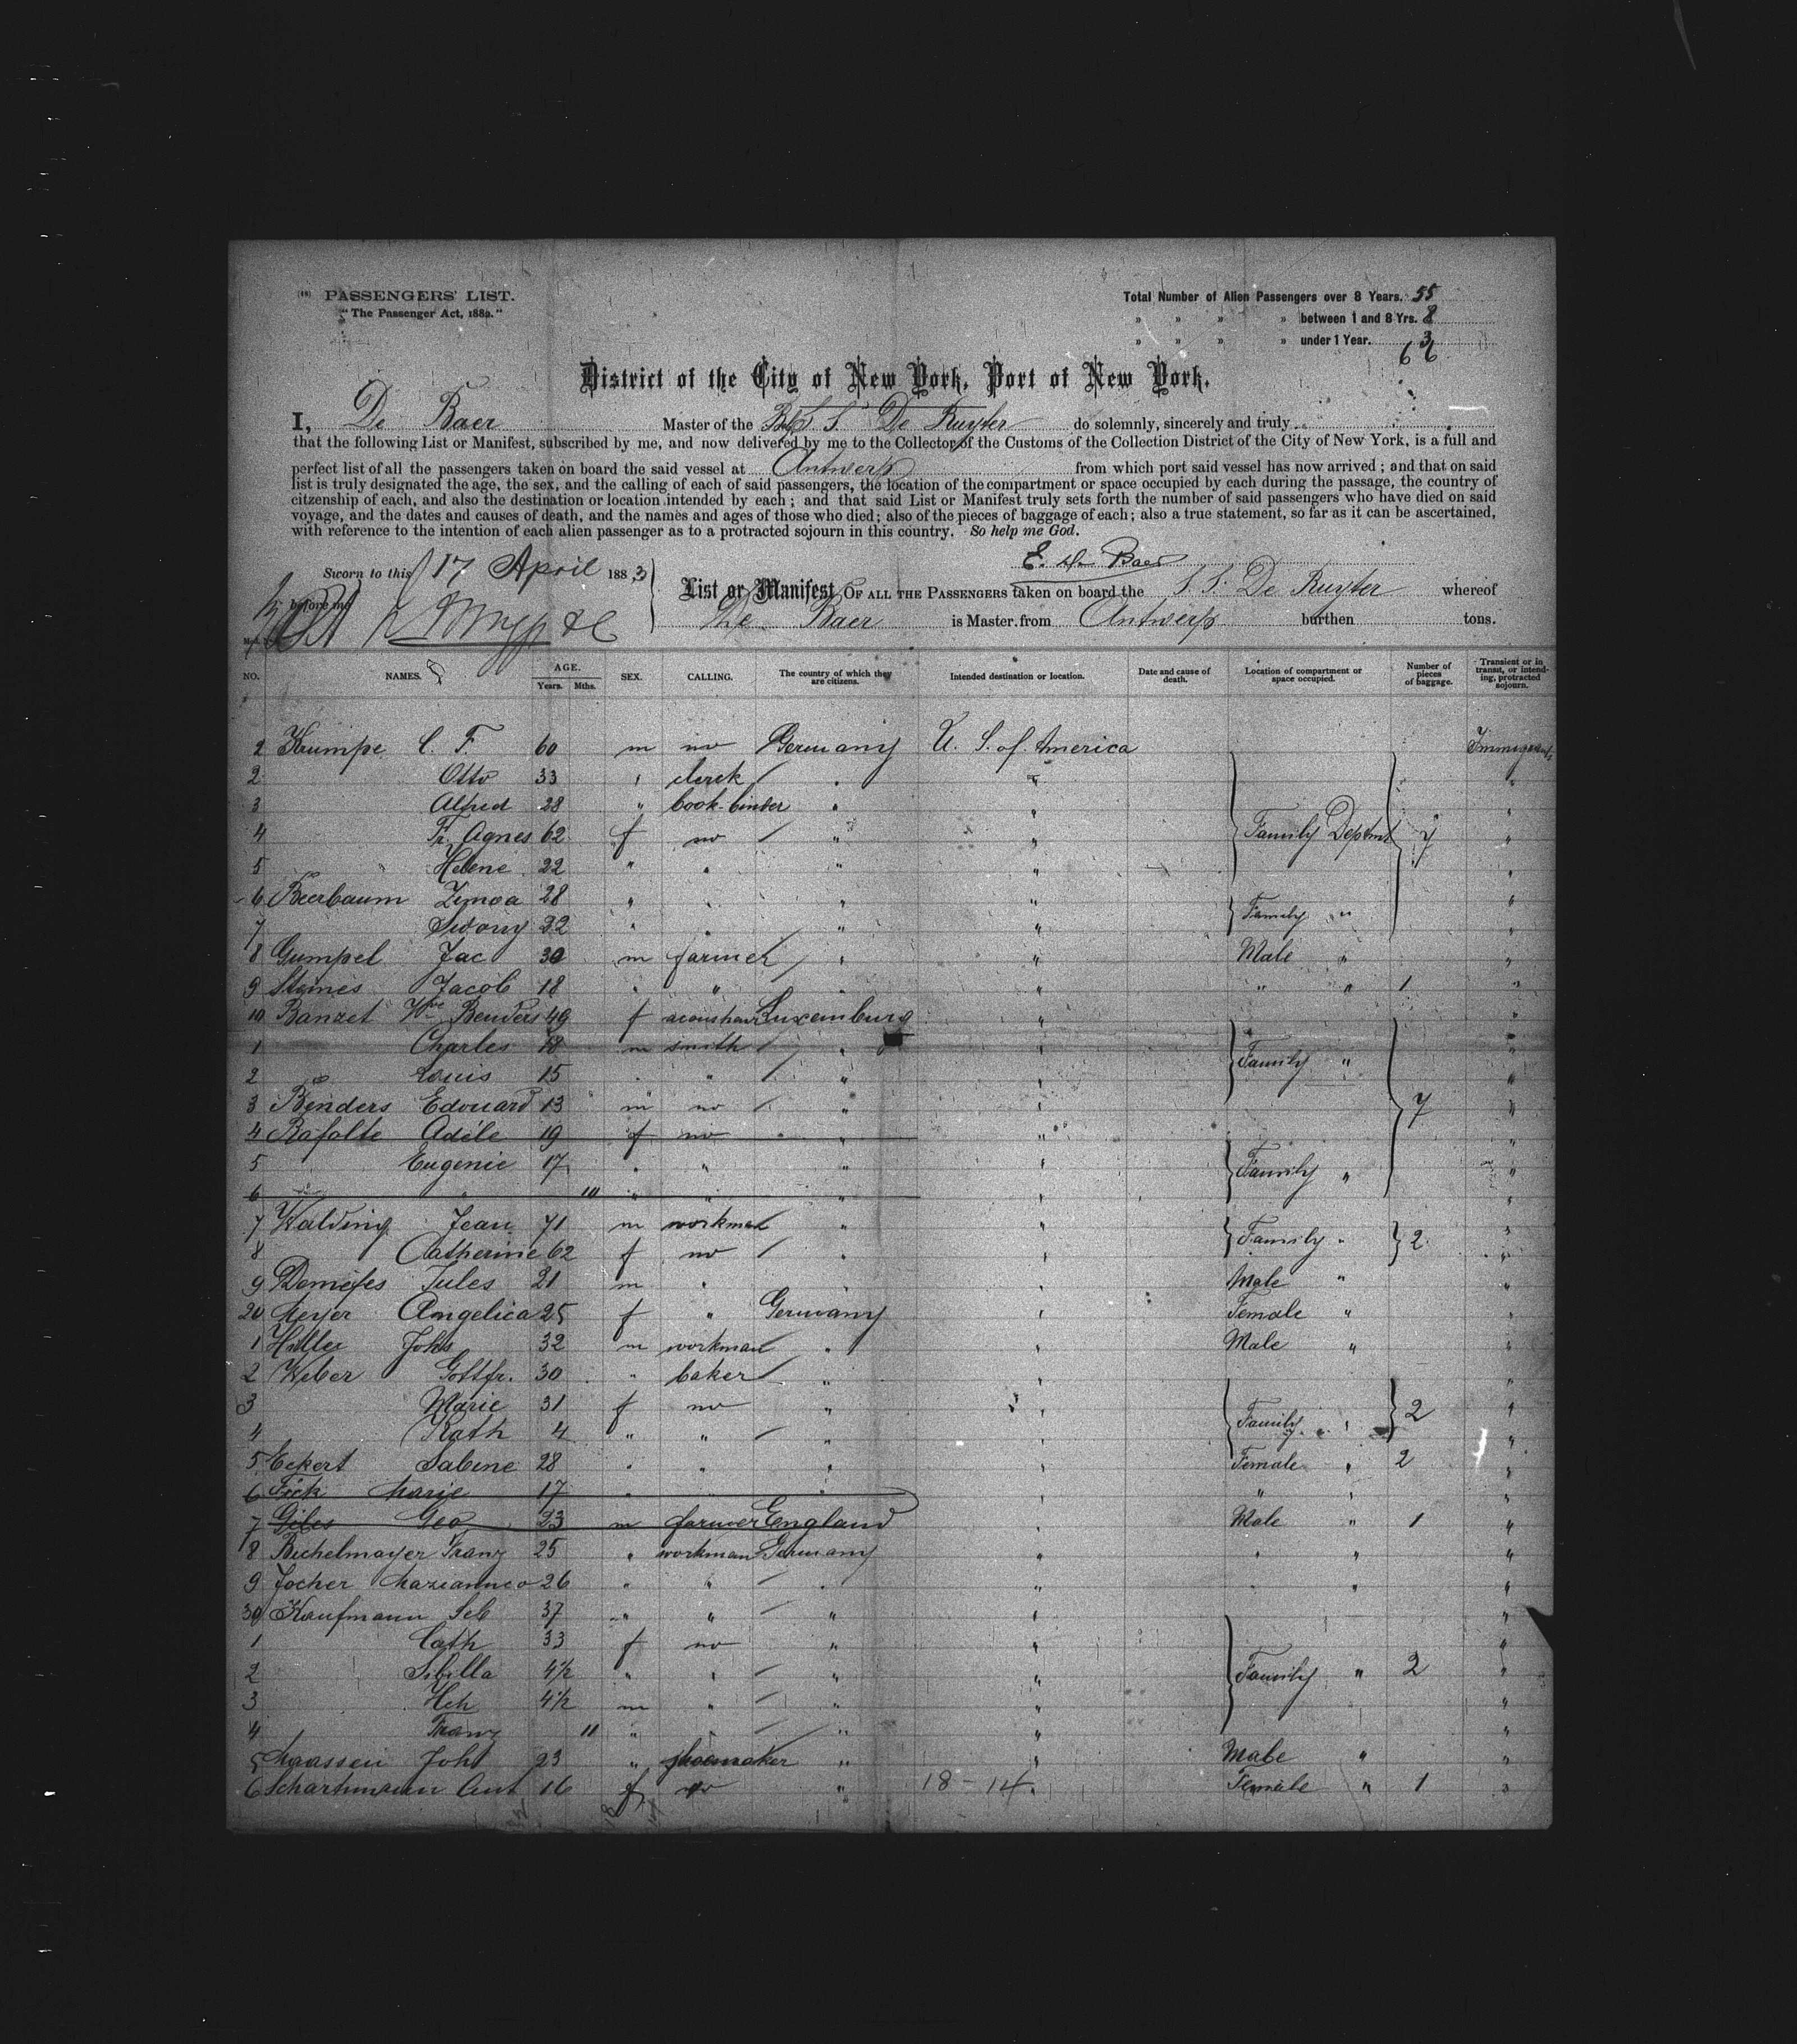 (18) PASSENGERS' LIST.
"The Passenger Act, 1882."
Total Number of Alien Passengers over 8 Years. 55
" " " " between 1 and 8 Yrs. 8
" " " " under 1 Year. 3
66
District of the City of New York, Port of New York.
I, De Baer Master of the S. S. De Ruyter do solemnly, sincerely and truly
that the following List or Manifest, subscribed by me, and now delivered by me to the Collector of the Customs of the Collection District of the City of New York, is a full and
perfect list of all the passengers taken on board the said vessel at Antwerp from which port said vessel has now arrived; and that on said
list is truly designated the age, the sex, and the calling of each of said passengers, the location of the compartment or space occupied by each during the passage, the country of
citzenship of each, and also the destination or location intended by each; and that said List or Manifest truly sets forth the number of said passengers who have died on said
voyage, and the dates and causes of death, and the names and ages of those who died; also of the pieces of baggage of each; also a true statement, so far as it can be ascertained,
with reference to the intention of each alien passenger as to a protracted sojourn in this country. So help me God.
E. De Baer
Sworn to this 17 April 1883
before me
List or Manifest OF ALL THE PASSENGERS taken on board the S. S. De Ruyter whereof
De Baer is Master, from Antwerp burthen tons.
NO. NAMES. AGE. Years. Mths. SEX. CALLING. The country of which they are citizens. Intended destination or location. Date and cause of death. Location of compartment or space occupied. Number of pieces of baggage. Transient or in transit, or intending, protracted sojourn.
Krumpe C. F. 60 m no Germany U. S. of America Immigrants
2 Otto 33 " clerk " " "
3 Alfred 28 " book-binder " " "
4 Fr. Agnes 62 f no " " Family Deptmt 7 "
5 Helene 22 " " " " "
6 Beerbaum 28 " " " " "
7 Sidony 22 " " " " Family " "
8 Gumpel Jac 30 m farmer " " Male " "
9 Jacob 18 " " " " " " 1 "
10 Banzet Wve Benders 49 f Luxemburg " "
1 Charles 18 m smith " " Family " "
2 Louis 15 " " " " "
3 Benders Edouard 13 m no " " 7 "
4 Rafolte Adèle 19 f no " " "
5 Eugenie 17 " " " " Family " "
6 " " 11 " " " " "
7 Walding Jean 71 m workman " " "
8 Catherine 62 f no " " Family " 2 "
9 Jules 21 m " " " Male " "
20 Meyer Angelica 25 f " Germany " Female " "
1 Hiller Johs 32 m workman " " Male " "
2 Weber Gottfr. 30 " baker " " "
3 Marie 31 f no " " 2 "
4 Kath 4 " " " " Family " "
5 Eckert Sabine 28 " " " " Female " 2 "
6 Fick Marie 17 " " " " " " "
7 Giles Geo 23 m farmer England " Male " 1 "
8 Bichelmayer Franz 25 " workman Germany " " " "
9 Jocher 26 " " " " " " "
30 Kaufmann Seb 37 " " " " "
1 Cath 33 f no " " "
2 Sibilla 4½ " " " " Family " 2 "
3 Hch 4½ m " " " "
4 Franz 11 " " " " "
5 Maassen Joh 23 " shoemaker " " Male " "
6 Schartmann 16 f no " 18 - 14. Female " 1 "